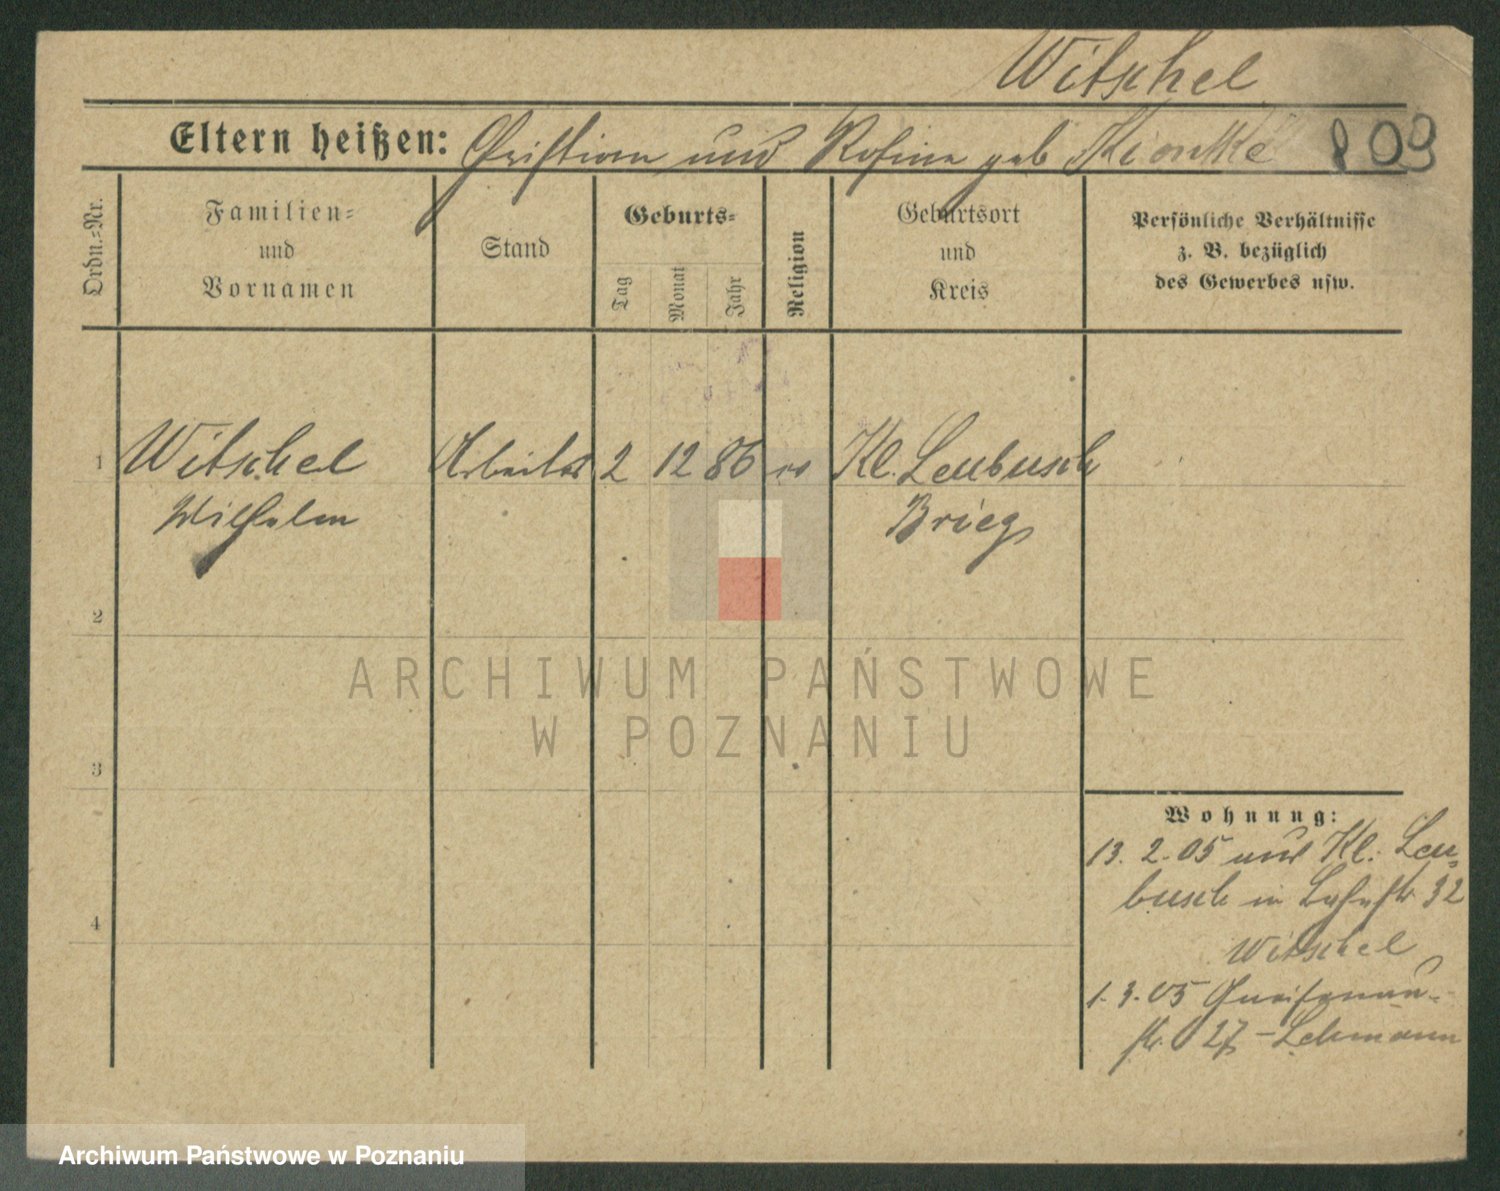 Witschel
Eltern heißen: Christian und Rosine geb
809
Ordn.=Nr.
Familien=
und
Vornamen
Stand
Geburts=
Tag
Monat
Jahr
Religion
Geburtsort
und
Kreis
Persönliche Verhältnisse
z. B. bezüglich
des Gewerbes usw.
1 Witschel Arbeiter 2 12 86 ev Kl. Leubusch
Wilhelm Brieg
2
3
4
Wohnung:
13. 2. 05 aus Kl. Leu-
busch in 32
Witschel
1. 3. 05 Gneisenau-
str. 27 - Lehmann
ARCHIWUM PAŃSTWOWE
W POZNANIU
Archiwum Państwowe w Poznaniu